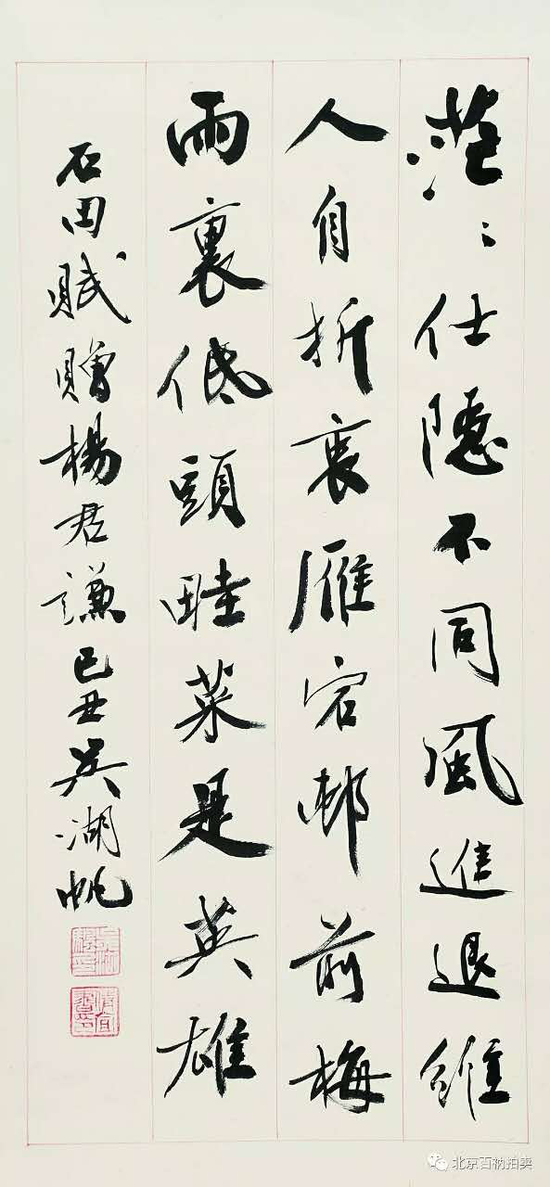 茫〻仕隱不同風進退維
人自折衷雁宕邨前梅
雨裏低頭畦菜是英雄
石田賦贈楊君謙己丑吳湖帆
北京百衲拍卖